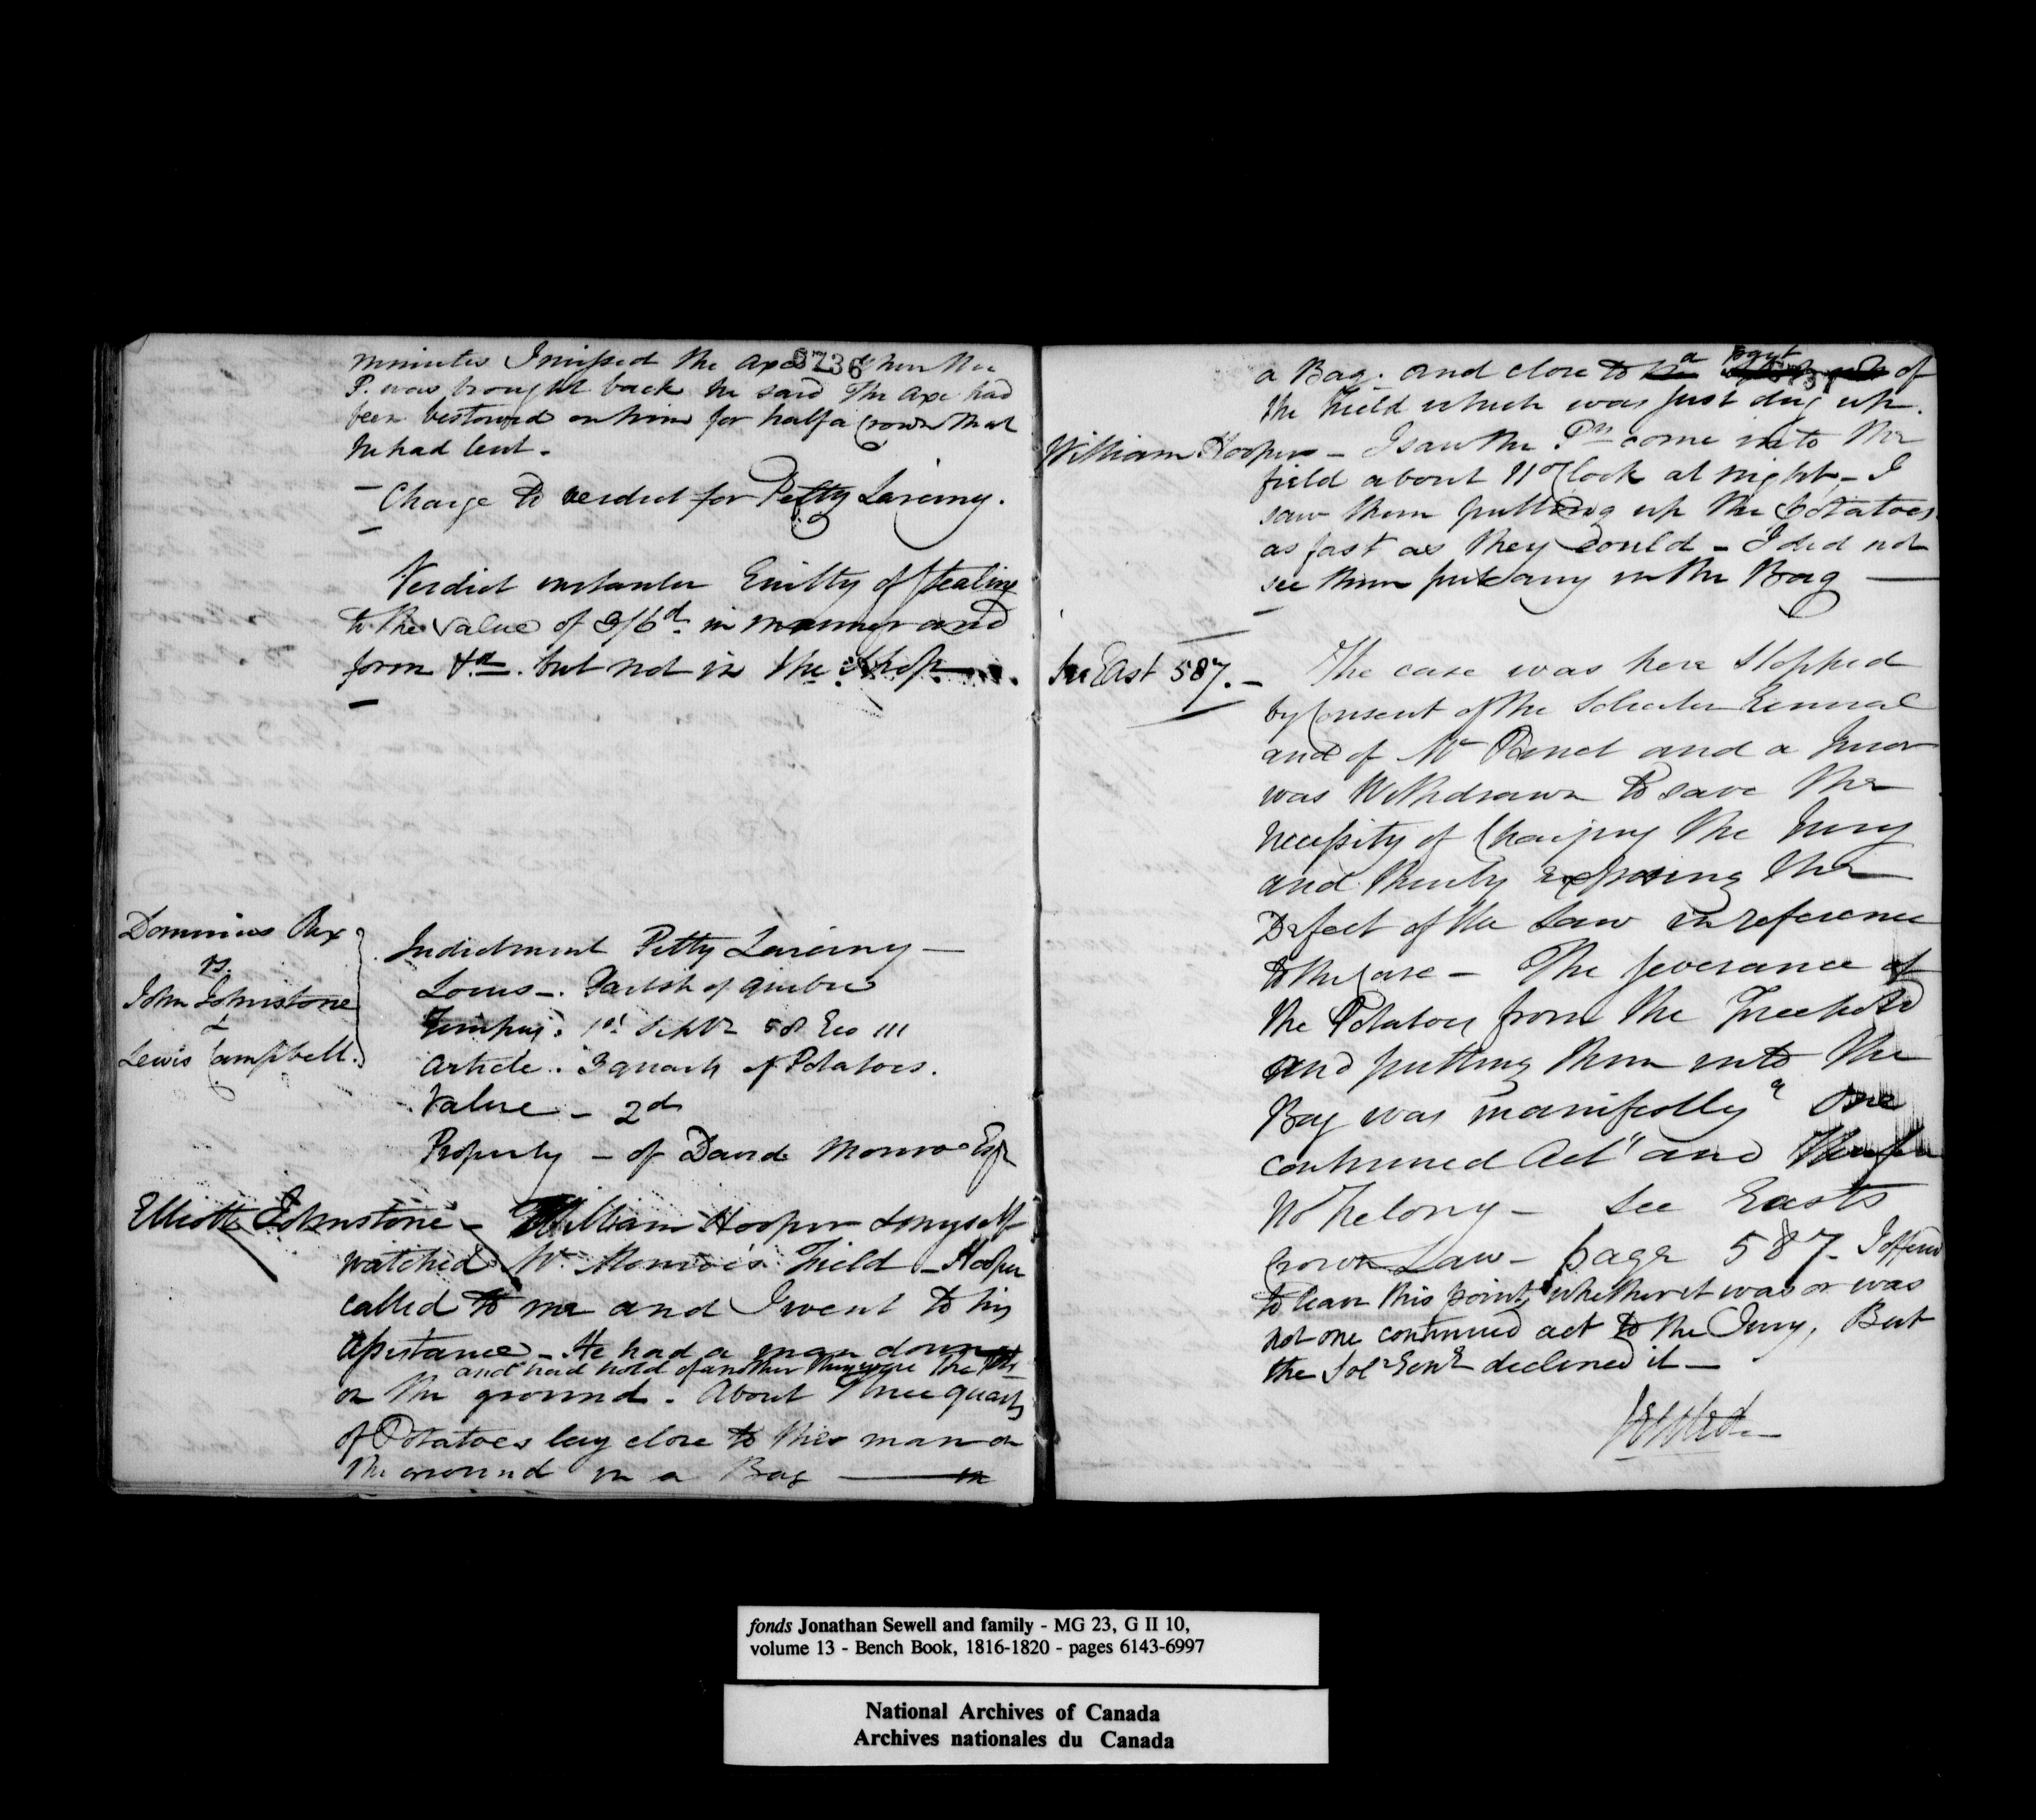 minutes I missed the axe When the
6736
P. was brought back he said The Axe had
been bestowed on him for half a Crown that
he had lent.
Charge to verdict for Petty Larceny.
Verdict instanter Guilty of Stealing
to the value of 2/6d. in manner and
form &a. but not in the Shop
Dominus Rex
vs.
John Johnstone
&
Lewis Campbell.
Indictment Petty Larceny —
Locus —. Parish of Quebec
Tempus. 1st Septr 58 Geo III
Article. 3 quarts of Potatoes.
Value — 2d
Property — of David Monro Esqr
Elliott Johnstone — William Hooper & myself
watched Mr. Monro's Field — Hooper
called to me and I went to his
Assistance — He had a man down
and had hold of another They were the
on the ground. About Three quarts
of Potatoes lay close to this man on
the ground in a Bag — in
a Bag. and close to the a part of
the Field which was just dug up.
William Hooper — I saw the Prs come into the
field about 11 o'Clock at night — I
saw them pulling up the potatoes
as fast as they could — I did not
see them put any in the Bag —
See East 587. —
The case was here stopped
by Consent of the Solicitor General
and of Mr Panet and a Juror
was Withdrawn to save the
necessity of Charging the Jury
and thereby exposing the
Defect of the Law in reference
to the Case — The severance of
the Potatoes from the Freehold
and putting them into the
Bag was manifestly "One
continued Act" and Therefore
No Felony — See East's
Crown Law — page 587 — I offered
to leave this point, whether it was or was
not one continued act to the Jury, But
the Solr Genl declined it —
fonds Jonathan Sewell and family - MG 23, G II 10,
volume 13 - Bench Book, 1816-1820 - pages 6143-6997
National Archives of Canada
Archives nationales du Canada